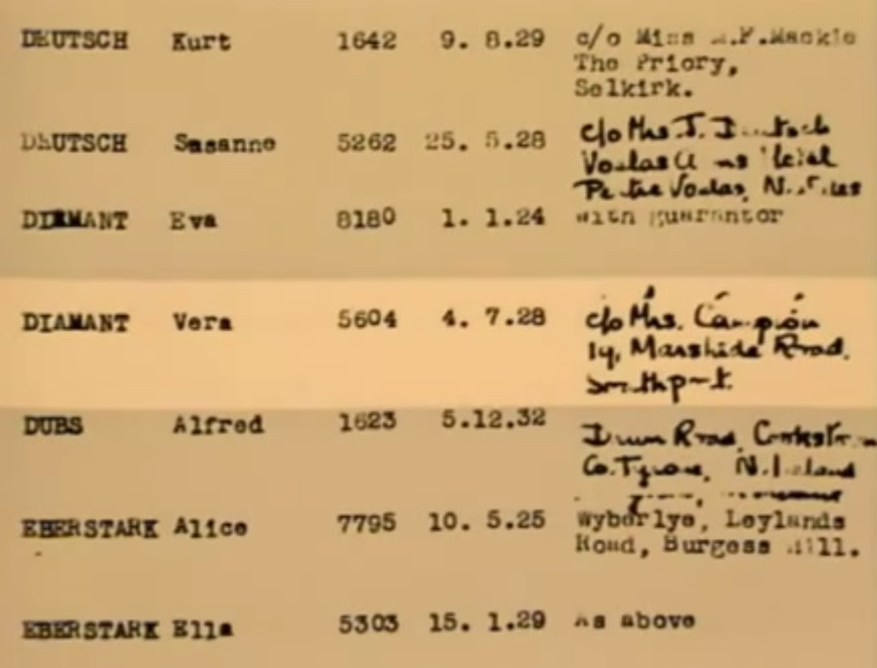 DEUTSCH Kurt 1642 9. 8.29 c/o Miss .F.Mackie
The Priory,
Selkirk.
DEUTSCH Sasanne 5262 25. 5.28 c/o Mrs J. Deutsch
Voelas
Voelas, N.
DIAMANT Eva 8180 1. 1.24 with guarantor
DIAMANT Vera 5604 4. 7.28 c/o Mrs. Campion
19, Marshside Road.
Southport.
DUBS Alfred 1623 5.12.32 Drum Road, Cookstown
Co.Tyrone, N.Ireland
EBERSTARK Alice 7795 10. 5.25 Wyberlye, Leylands
Road, Burgess Hill.
EBERSTARK Ella 5303 15. 1.29 As above